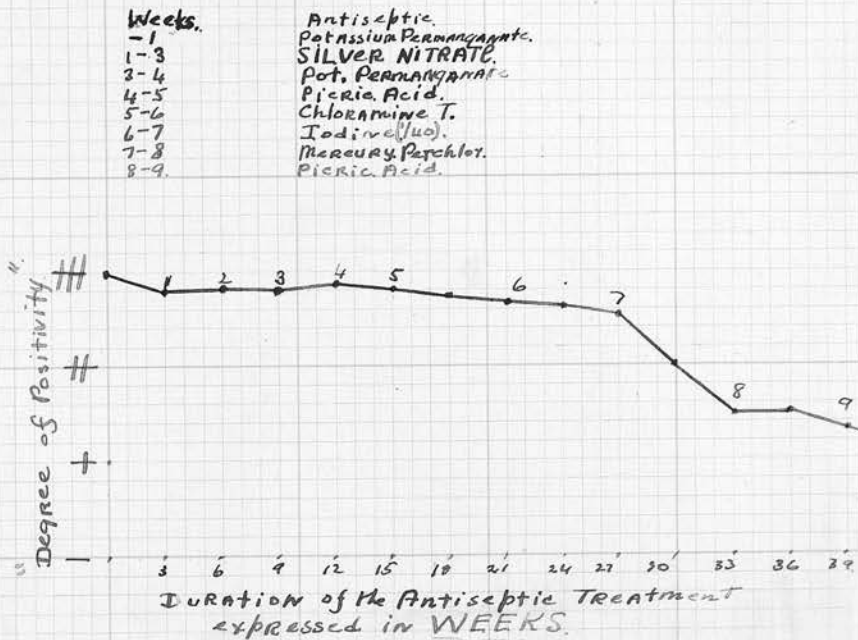 Weeks. Antiseptic.
-1 Potassium Permanganate.
1-3 SILVER NITRATE.
3-4 Pot. Permanganate
4-5 Picric Acid.
5-6 Chloramine T.
6-7 Iodine (1/40).
7-8 Mercury Perchlor.
8-9. Picric Acid.
Degree of Positivity
+++
++
+
-
1 2 3 4 5 6 7 8 9
3 6 9 12 15 18 21 24 27 30 33 36 39
DURATION of the Antiseptic TREATMENT
expressed in WEEKS.